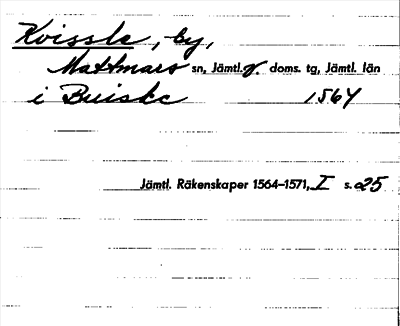 Kvissle, by,
Mattmars sn, Jämtl. v. doms. tg, Jämtl. län
i Buiske 1564
Jämtl. Räkenskaper 1564–1571, I s. 25